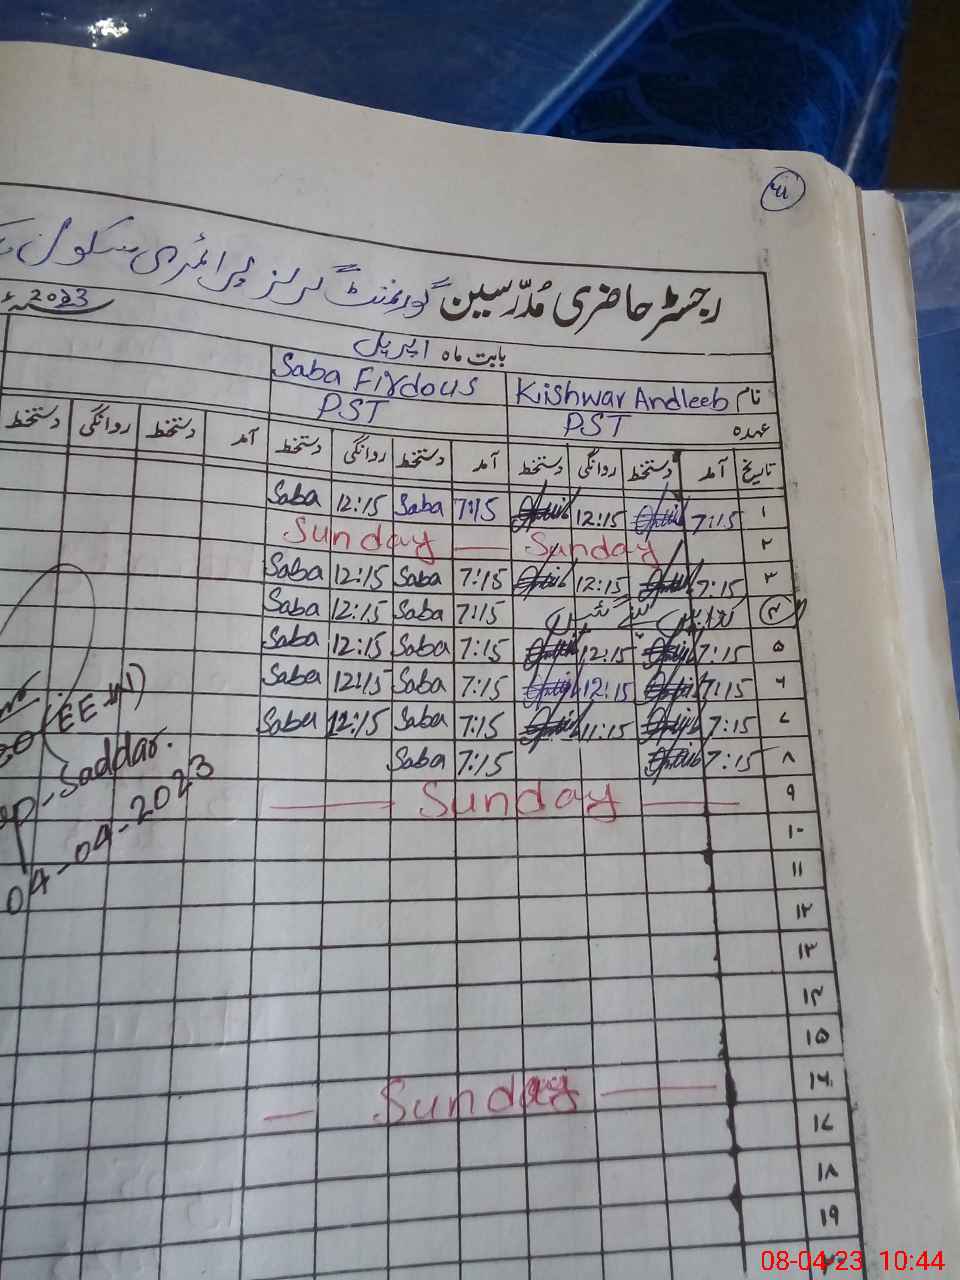 رجسٹر حاضری مُدرّسین گورنمنٹ گرلز پرائمری سکول
بابت ماہ اپریل 2023
نام Kishwar Andleeb Saba Firdous
عہدہ PST PST
تاریخ آمد دستخط روانگی دستخط آمد دستخط روانگی دستخط آمد دستخط روانگی دستخط
۱ 7:15 12:15 7:15 Saba 12:15 Saba
۲ Sunday — Sunday
۳ 7:15 12:15 7:15 Saba 12:15 Saba
۴ 7:15 Saba 12:15 Saba
۵ 7:15 12:15 7:15 Saba 12:15 Saba
۶ 7:15 12:15 7:15 Saba 12:15 Saba
۷ 7:15 11:15 7:15 Saba 12:15 Saba
۸ 7:15 7:15 Saba
۹ — Sunday —
۱۰
۱۱
۱۲
۱۳
۱۴
۱۵
۱۶ — Sunday —
۱۷
۱۸
۱۹
۲۰
(EE-W)
Saddar.
04-04-2023
08-04-23 10:44